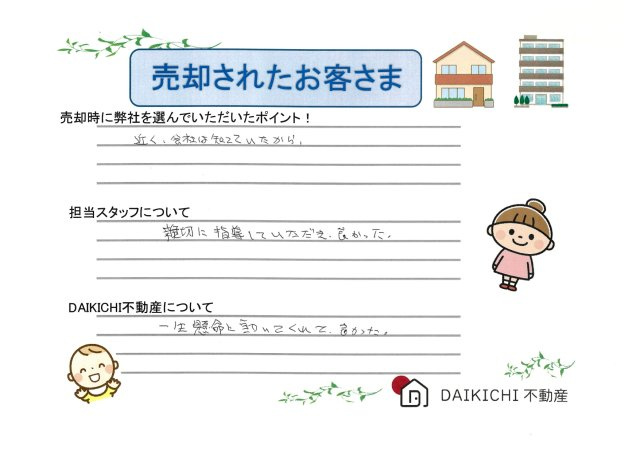 売却されたお客さま
売却時に弊社を選んでいただいたポイント！
近く、会社は知っていたから。
担当スタッフについて
親切に指導していただき、良かった。
DAIKICHI不動産について
一生懸命に動いてくれて、良かった。
DAIKICHI 不動産